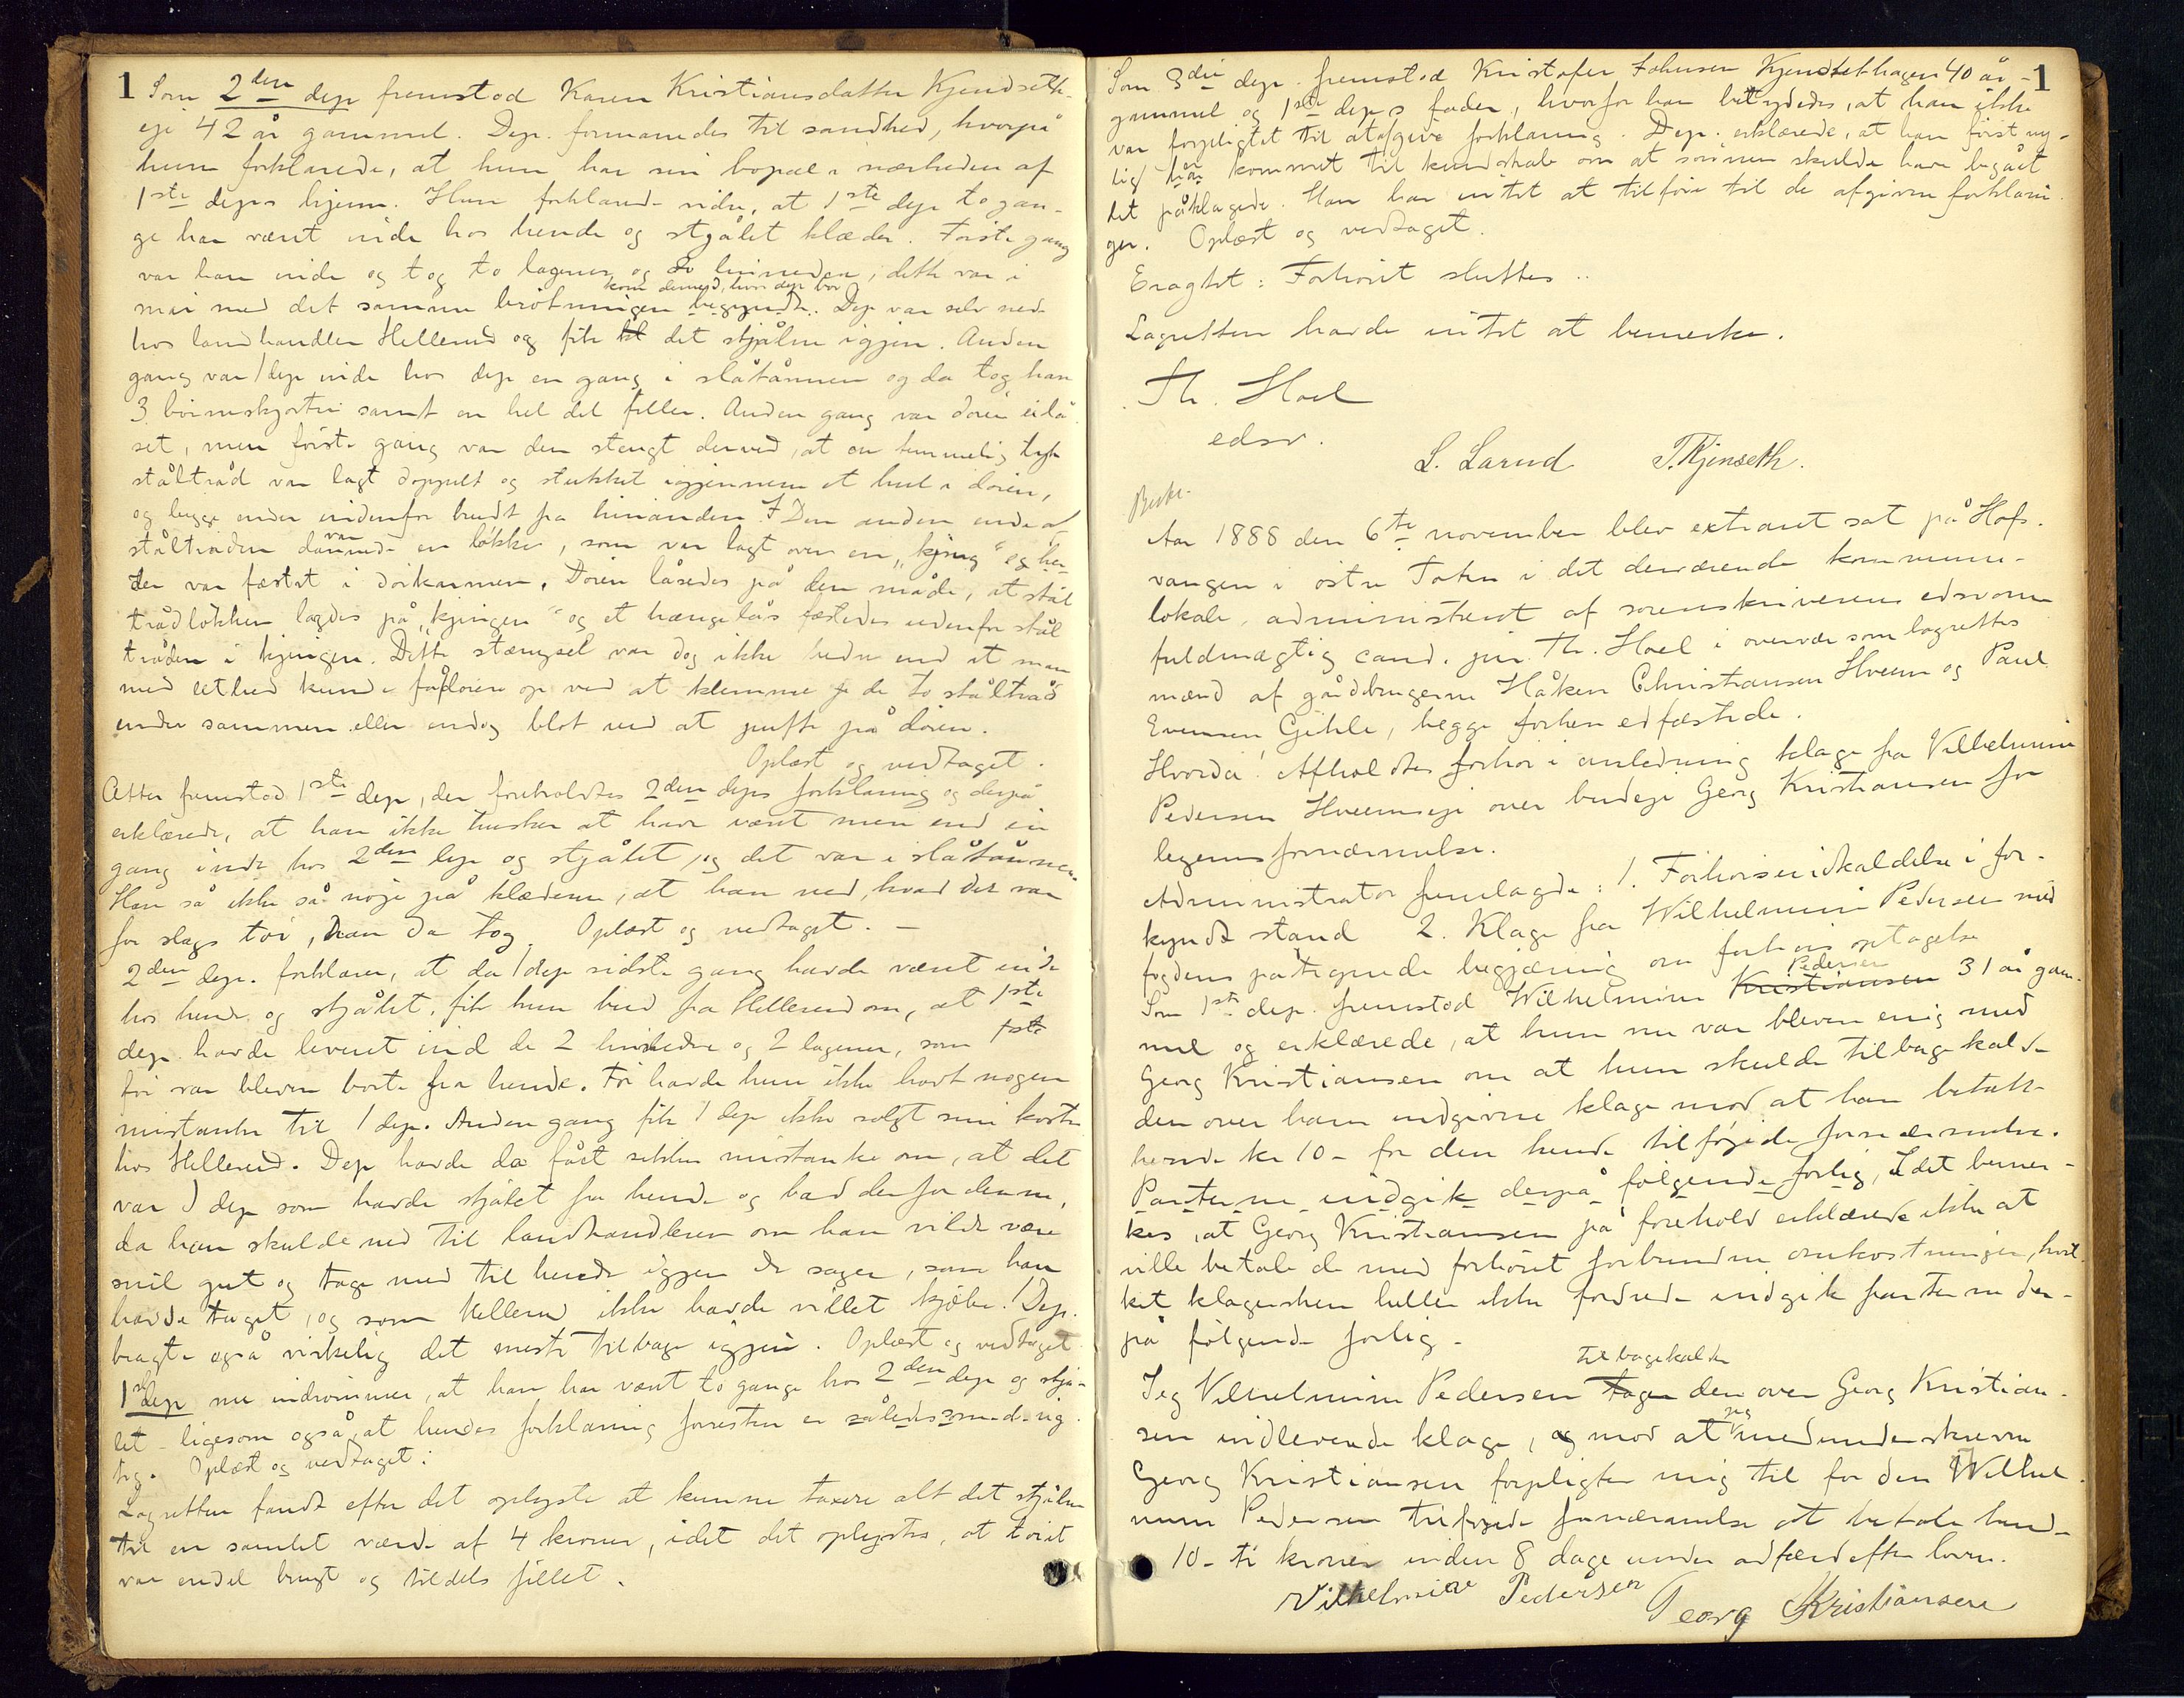 1
Som 2den dep fremstod Karen Kristiansdatter Kjendseth-
eje 42 år gammel. Dep. formanedes til sandhed, hvorpå
hun forklarede, at hun har sin bopæl i nærheden af
1ste deps hjem. Hun forklared- vidre, at 1ste dep to gan-
ge har været inde hos hende og stjålet klæder. Første gang
var han inde og tog to lagener og to linneder, dette var i
mai med det samme brøtningen begyndte. Dep var selv ned
kom dermed, hvor dep bor
hos landhandler Hellerud og fik det stjålne igjen. Anden
gang var 1 dep inde hos dep en gang i slåtånnen og da tog han
3 børneskjorter samt en hel del filler. Anden gang var døren ulå-
set, men første gang var den stengt derved, at en temmelig tyk
ståltråd var lagt doppelt og stukket igjennem et hul i døren,
og begge ender indenfor bredt fra hinanden. I Den anden ende af
ståltråden var dannede en løkke, som var lagt over en "kjing" og her-
der var fæstet i dørkarmen. Døren låsedes på den måde, at stål
trådløkken lagdes på "kjingen" og et hængelås fæstedes udenfor stål
tråden i kjingen. Dette stængsel var dog ikke bedre end at man
med lethed kunde få døren op ved at klemme de to ståltråd
ender sammen eller endog blot ved at puffe på døren.
Oplæst og vedtaget.
Atter fremstod 1ste dep, der foreholdtes 2den deps forklaring og derpå
erklærede, at han ikke husker at have været mere end en
gang inde hos 2den dep og stjålet og det var i slåtånnen.
Han så ikke så nøje på klæderne, at han ved, hvad det var
for slags tøi, han da tog. Oplæst og vedtaget. —
2den dep. forklarer, at da 1 dep sidste gang havde været inde
hos hende og stjålet, fik hun bud fra Hellerud om, at 1ste
dep. havde leveret ind de 2 linneder og 2 lagener, som 1ste
før var bleven borte fra hende. Før havde hun ikke havt nogen
mistanke til 1 dep. Anden gang fik 1 dep ikke solgt sine koster
hos Hellerud. Dep havde da fået sikker mistanke om, at det
var 1 dep som havde stjålet fra hende og bad derfor denne,
da han skulde ned til landhandleren om han vilde være
snil gut og tage med til hende igjen de sager, som han
havde taget, og som Hellerud ikke havde villet kjøbe. 1 Dep.
bragte også virkelig det meste tilbage igjen. Oplæst og vedtaget
1ste dep nu indrømmer, at han har været to gange hos 2den dep og stjå-
let - ligesom også, at hendes forklaring forresten er
tig. Oplæst og vedtaget:
Lagretten fandt efter det oplyste at kunne taxere alt det stjålne
til en samlet værdi af 4 kroner, idet det oplystes, at tøiet
var endel brugt og tildels fillet.
1
Som 3die dep. fremstod Kristofer Johnsen Kjendsethagen 40 år
gammel og 1ste deps fader, hvorfor han betydedes, at han ikke
var forpligtet til at afgive forklaring. Dep. erklærede, at han først ny-
lig har kommet til kundskab om at sønnen skulde have begået
det påklagede. Han har intet at tilføie til de afgivne forklarin-
ger. Oplæst og vedtaget.
Eragtet: Forhøret sluttes ..
Lagretten havde intet at bemerke.
Th. Hoel
edsv.
L. Larud T. Kjenseth.
Beskr.
Aar 1888 den 6te november blev extraret sat på Hofs-
vangen i østre Toten i det derværende kommune-
lokale, administreret af sorenskriverens edsvorne
fuldmægtig cand. jur. Th. Hoel i overvær som lagrettes
mænd af gårdbrugerne Håken Christiansen Hveem og Paul
Evensen Gihle, begge forhen edfæstede.
Hvorda: Afholdtes forhør i anledning klage fra Vilhelmine
Pedersen Hveemseje over Georg Kristiansen for
legemsfornærmelse.
Administrator fremlagde: 1. Forhørsindkaldelse i for-
kyndt stand 2. Klage fra Wilhelmine Pedersen med
fogdens påtegnede begjæring om forhørs optagelse
Som 1ste dep. fremstod Wilhelmine Kristiansen Pedersen 31 år gam-
mel og erklærede, at hun nu var bleven enig med
Georg Kristiansen om at hun skulde tilbagekalde
den over ham indgivne klage mod at han betalte
hende kr 10 - for den hende tilføjede fornærmelse.
Parterne indgik derpå følgende forlig, Idet bemer-
kes, at Georg Kristiansen på forehold erklærede ikke at
ville betale de med forhøret forbundne omkostninger, hvil-
ket klagersken heller ikke fordrede indgik parterne der-
på følgende forlig -
Jeg Vilhelmine Pedersen tager tilbagekalder den over Georg Kristian-
sen indleverede klage, og mod at jeg medunderskrevne
Georg Kristiansen forpligter mig til for den Wilhel-
mine Pedersen tilføjede fornærmelse at betale hende
10 - ti kroner inden 8 dage under adfærd efter loven.
Vilhelmine Pedersen Georg Kristiansen